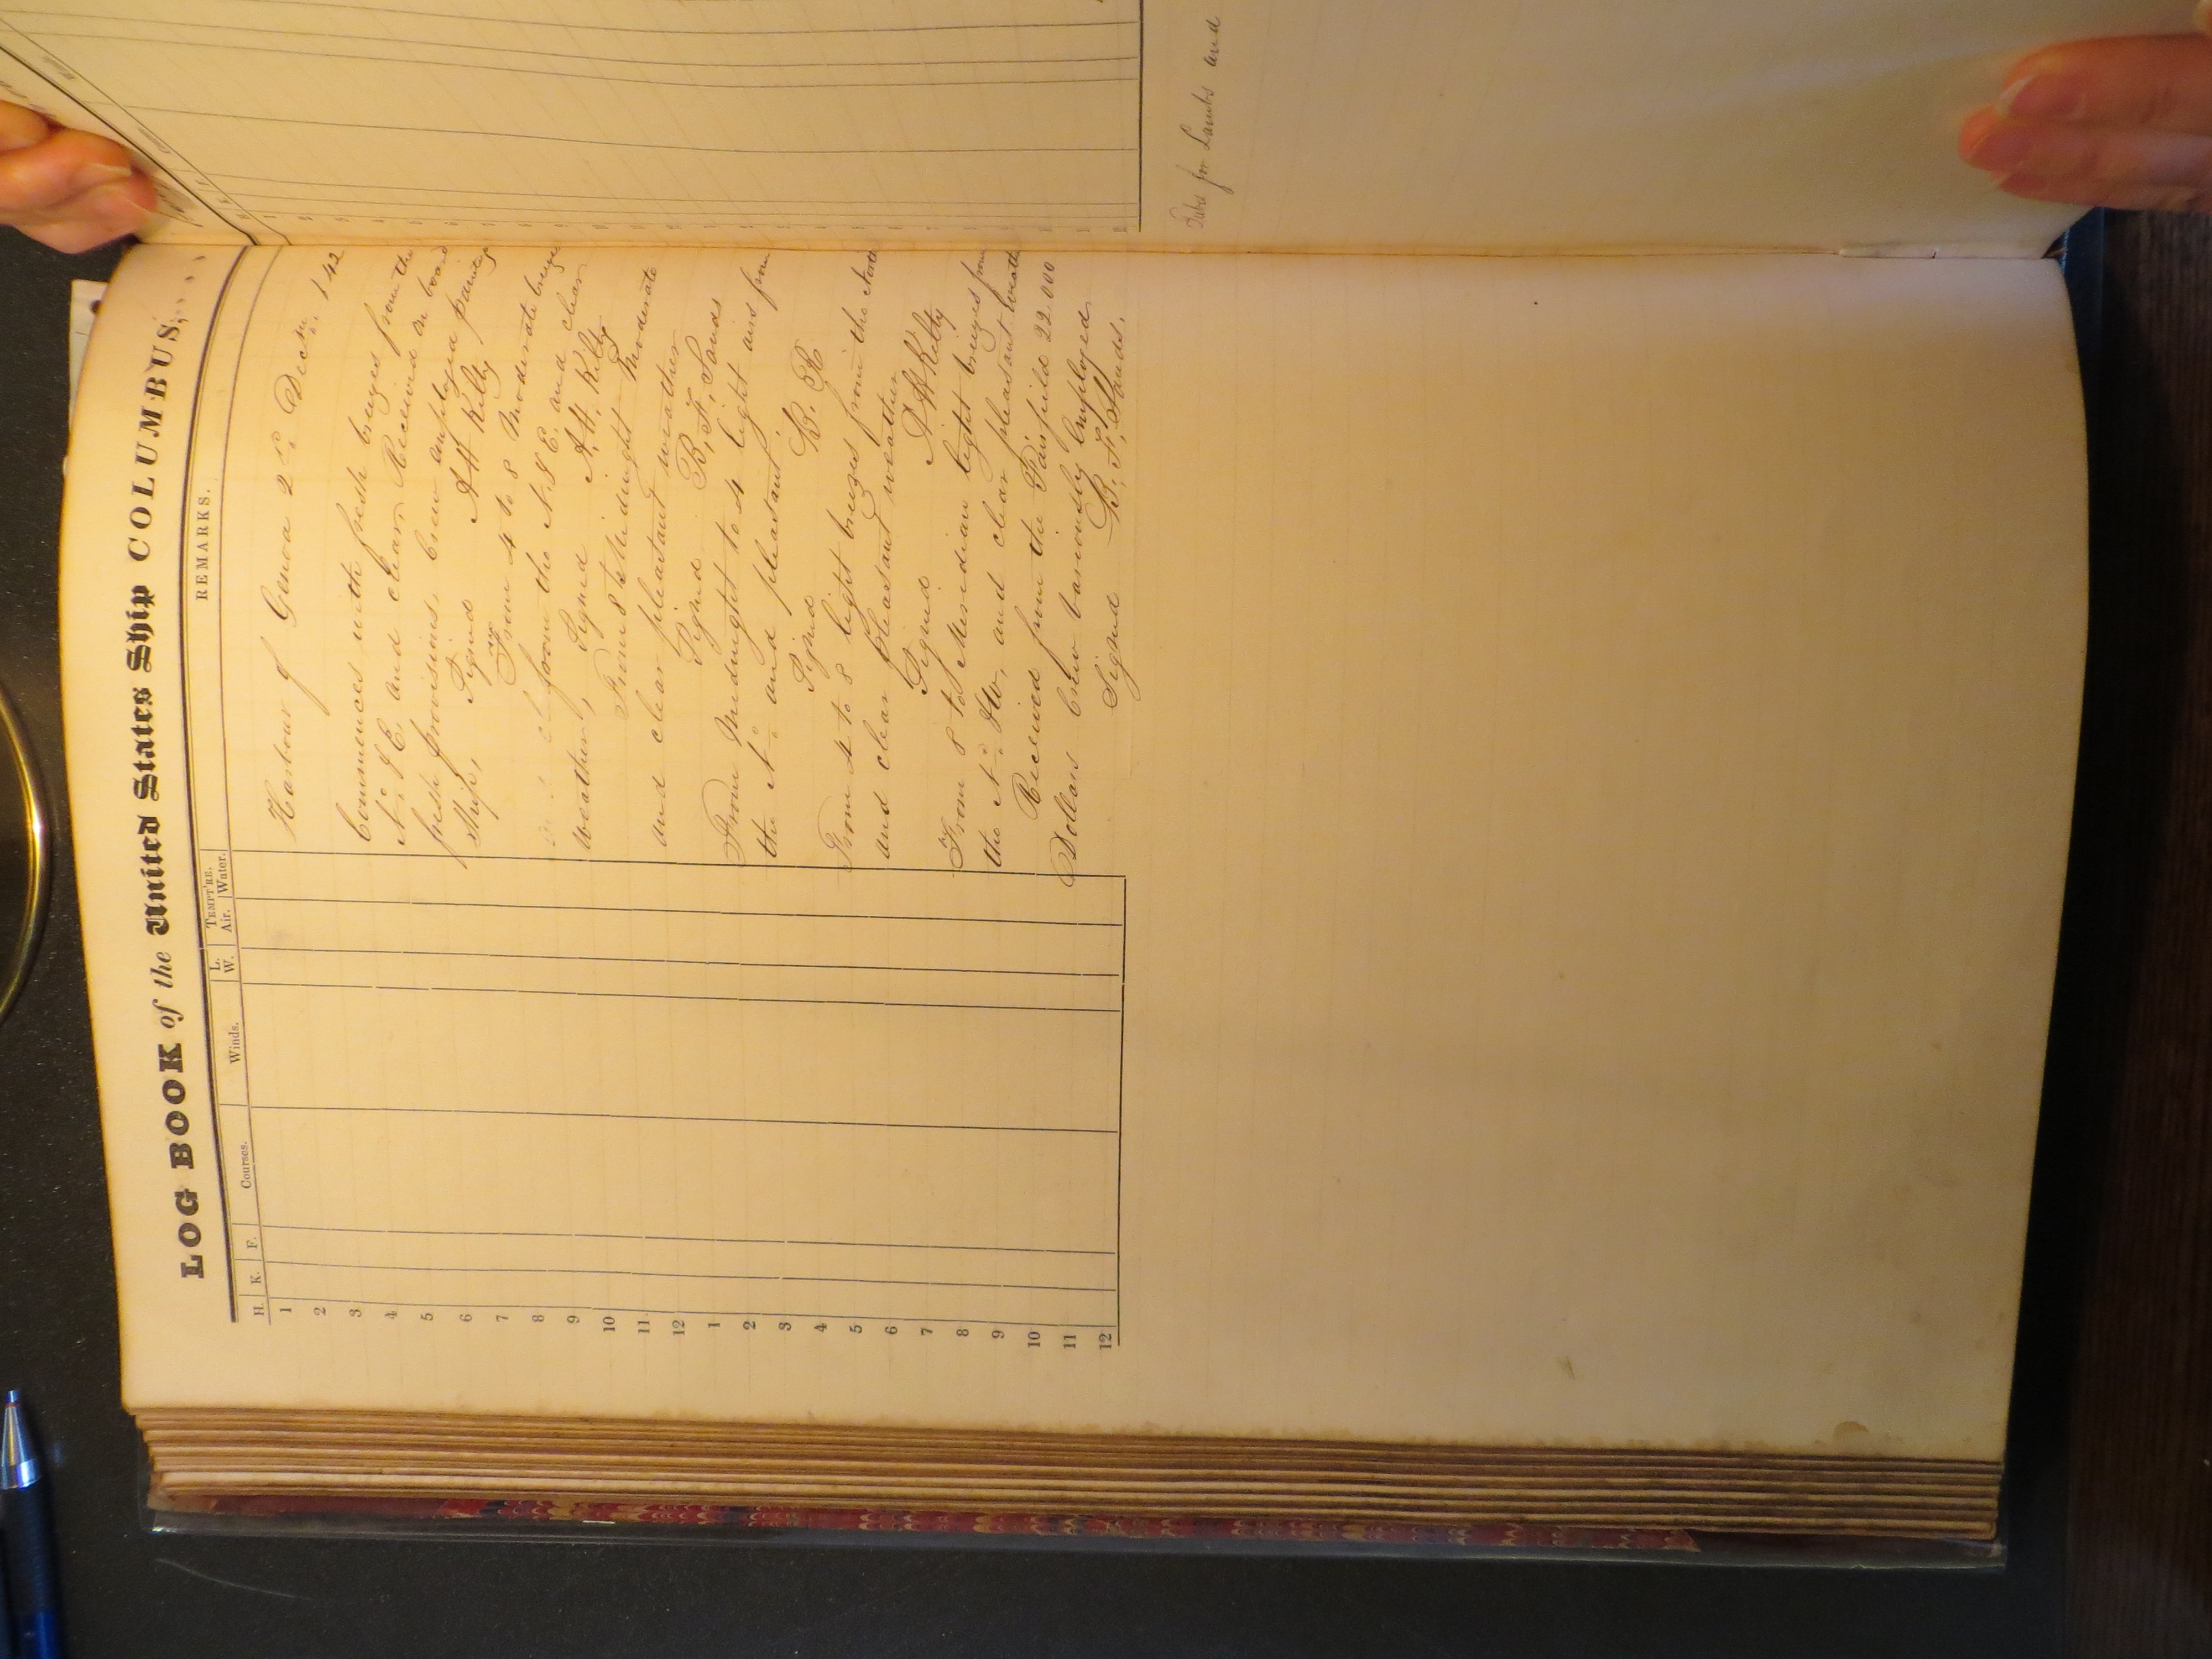 LOG BOOK of the United States Ship COLUMBUS,
H. K. F. Courses. Winds. L. W. TEMPT'RE. Air. Water. REMARKS.
1
2
3
4
5
6
7
8
9
10
11
12
1
2
3
4
5
6
7
8
9
10
11
12
Harbour of Genoa 2d. Decr. 142
Commences with fresh breezes from the
Nd. & E. and clear. Received on board
fresh provisions, crew employed painting
Ship, Signed A H Kilty
From 4 to 8 Moderate breezes
from the N. & E. and clear
weather, Signed A. H. Kilty
From 8 to Midnight Moderate
and clear pleasant weather
Signed B, F, Sands
From Midnight to 4 light airs from
the Nd. and pleasant
Signed B. R
From 4 to 8 light breezes from the North
and clear pleasant weather
Signed A H Kilty
From 8 to Meridian light breezes from
the Nd. & Wd, and clear pleasant weath
Received from the Fairfield 22.000
Dollars Crew variously Employed
Signed B, F, Sands.
for Lambs and